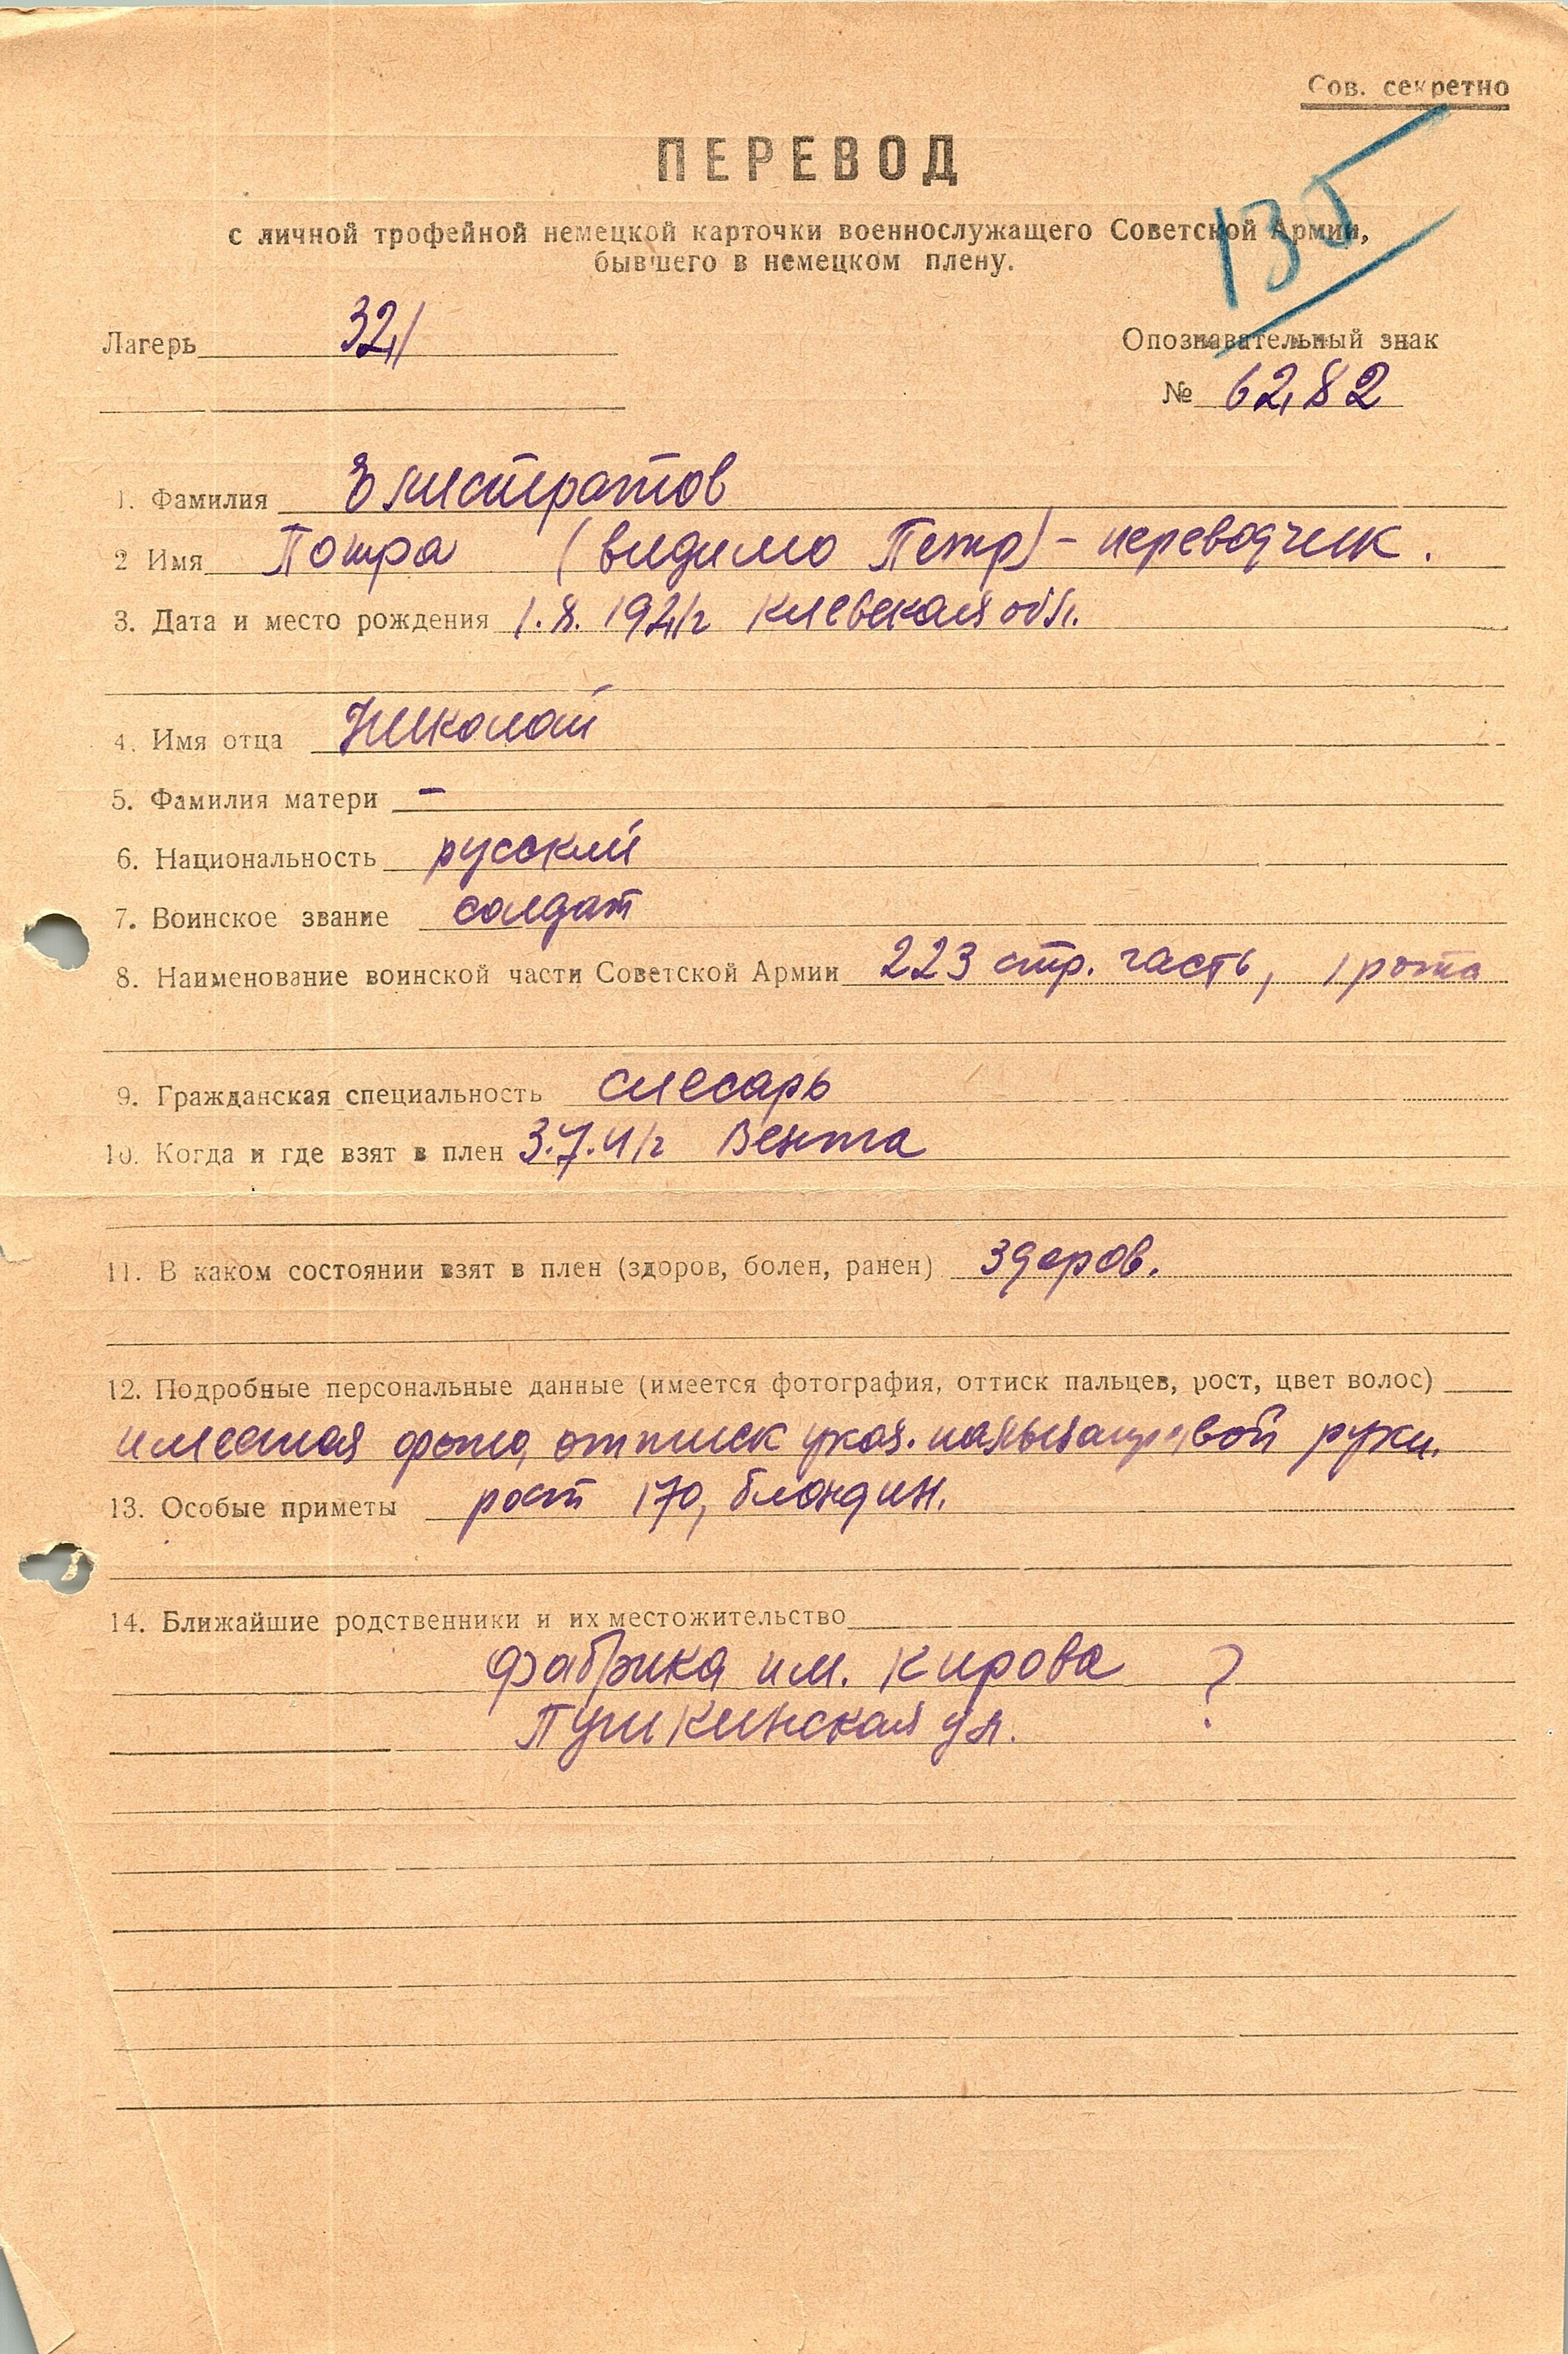 Сов. секретно
135
ПЕРЕВОД
с личной трофейной немецкой карточки военнослужащего Советской Армии,
бывшего в немецком плену.
Лагерь 321
Опознавательный знак
№ 6282
1. Фамилия Элистратов
2 Имя Потра (видимо Петр) - переводчик.
3. Дата и место рождения 1.8.1921г Киевская обл.
4. Имя отца Николай
5. Фамилия матери -
6. Национальность русский
7. Воинское звание солдат
8. Наименование воинской части Советской Армии 223 стр. часть, 1 рота
9. Гражданская специальность слесарь
10. Когда и где взят в плен 3.7.41г Вента
11. В каком состоянии взят в плен (здоров, болен, ранен) здоров.
12. Подробные персональные данные (имеется фотография, оттиск пальцев, рост, цвет волос)
имеется фото, оттиск указ. пальца правой руки.
13. Особые приметы рост 170, блондин.
14. Ближайшие родственники и их местожительство
фабрика им. Кирова ?
Пушкинская ул.